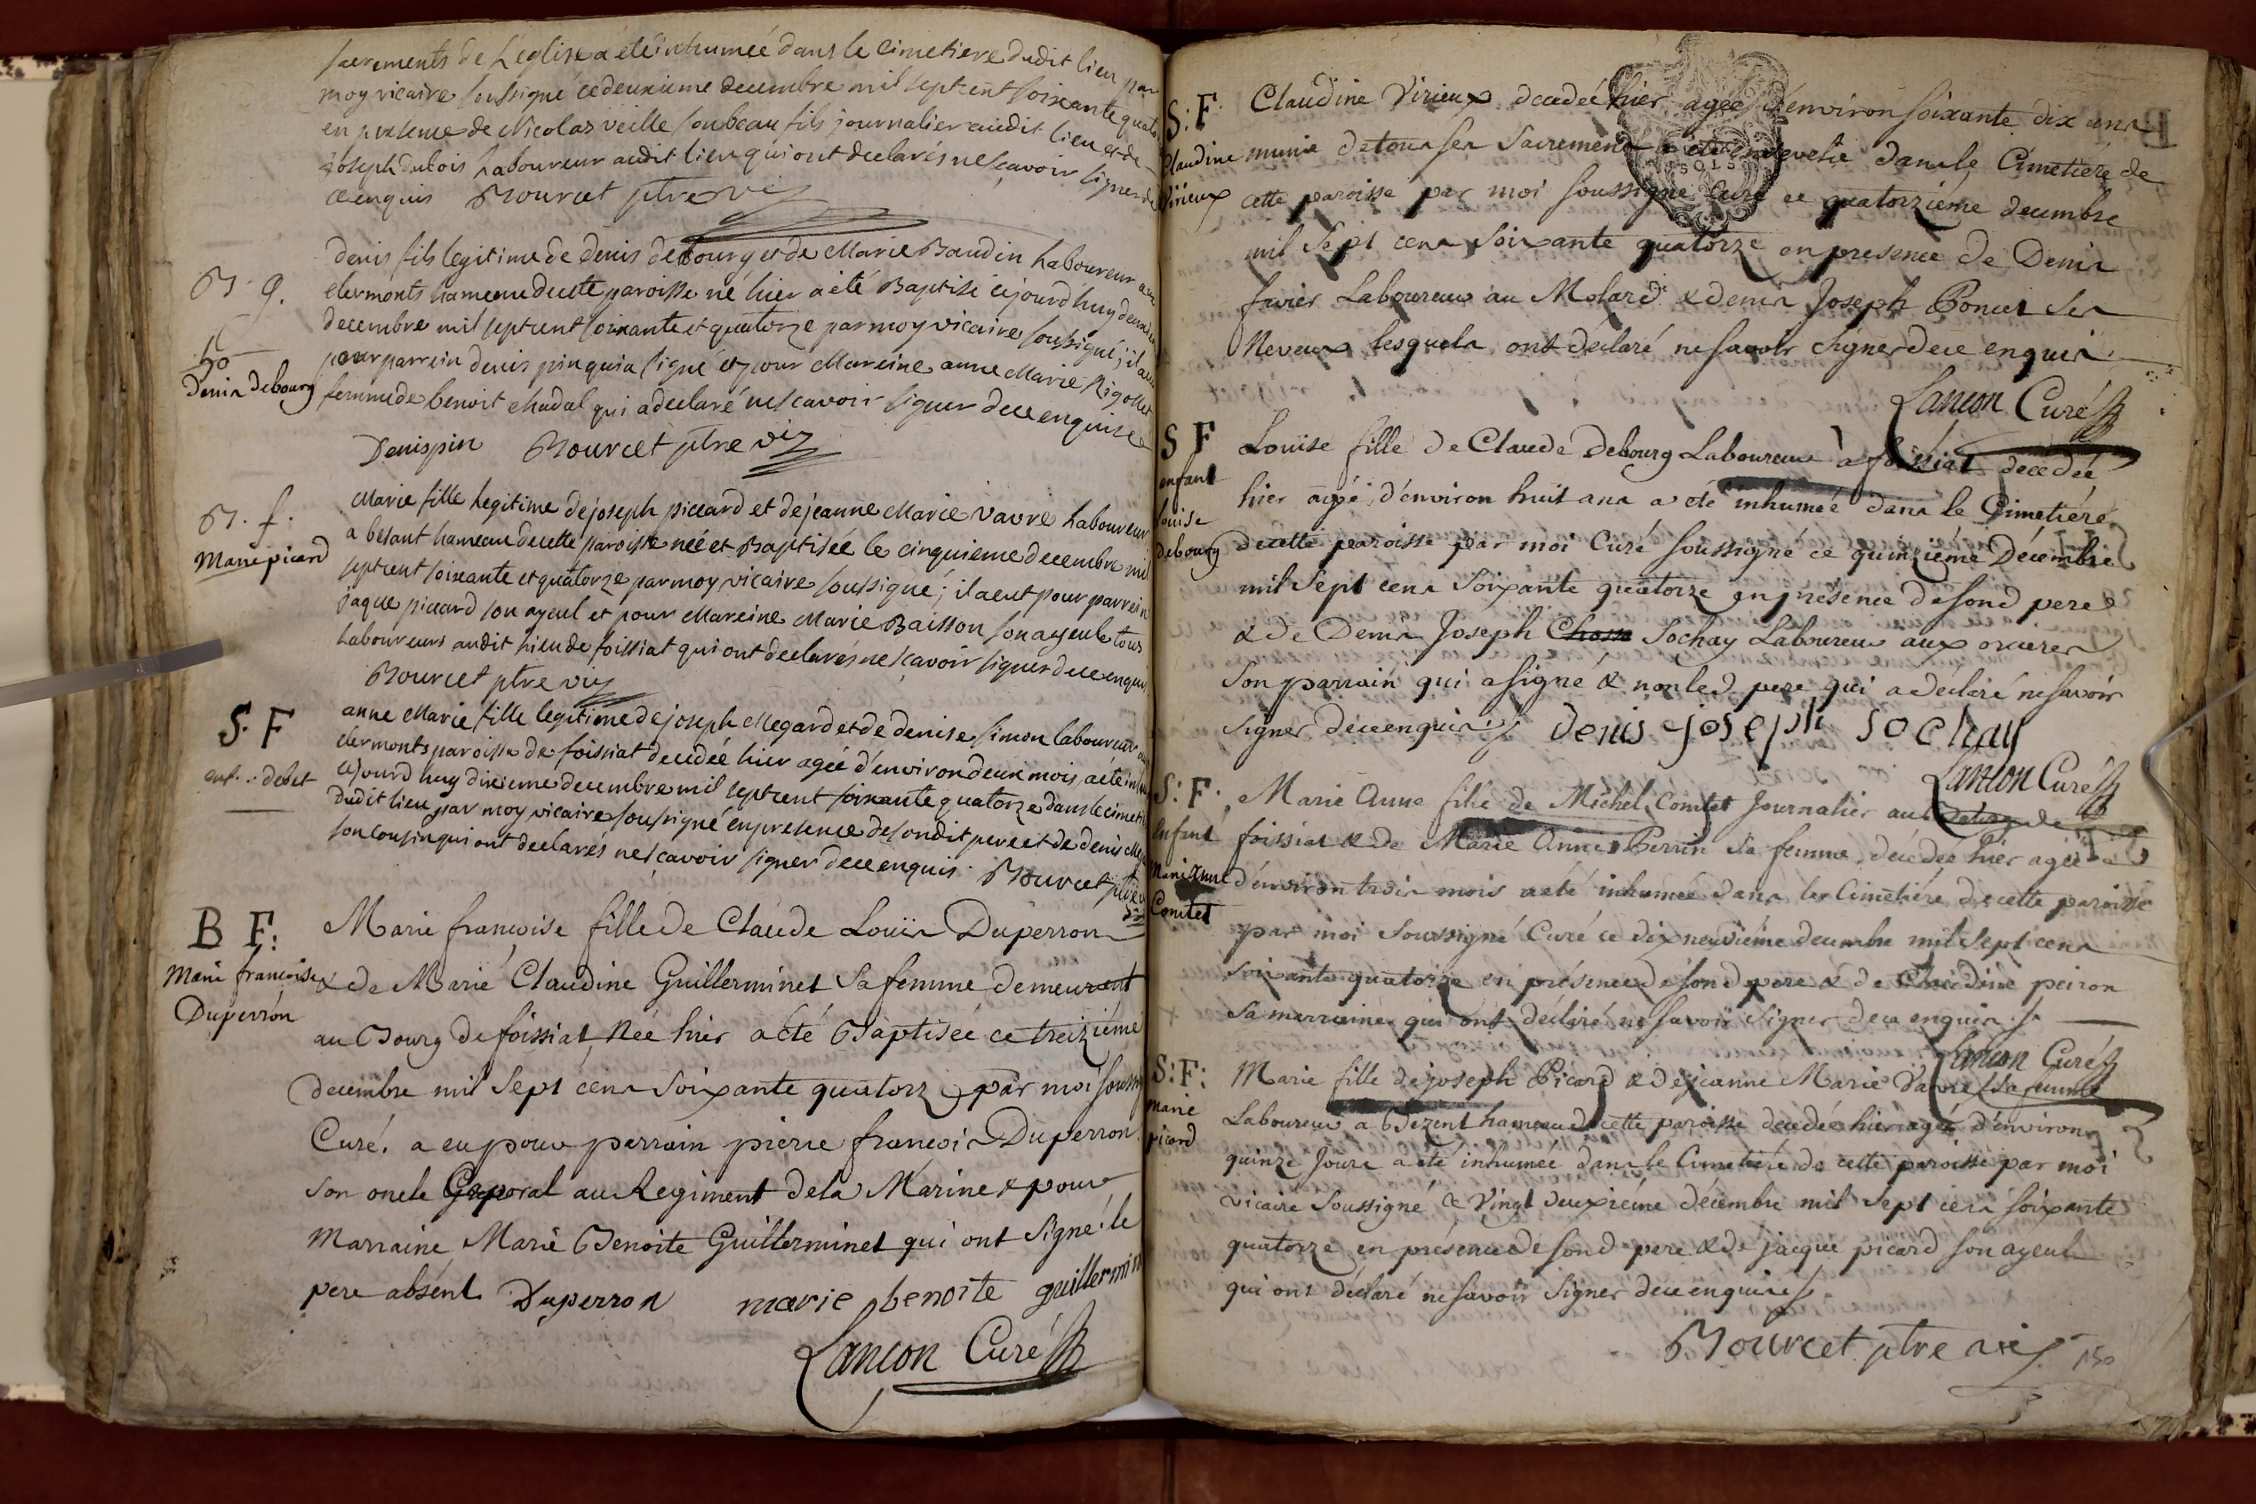 sacrements de L'eglise a eté inhumeé dans le cimetiere dudit lieu par
moy vicaire soussigné ce deuxieme decembre mil septcent soixante quatorze
en presence de Nicolas veille son beau fils journalier audit lieu et de
joseph dubois Laboureur audit lieu qui ont declarés ne sçavoir signer de
ce enquis Bourcet ptre vic
B. g.
Denis debourg
denis fils legitime de denis debourg et de Marie Baudin Laboureur aux
clermonts hameau de cette paroisse né hier a eté Baptisé cejourd'huy
decembre mil septcent soixante et quatorze par moy vicaire soussigné; il a eu
pour parrein denis pin qui a signé et pour Mareine anne Marie Rigollet
femme de benoit Chadal qui a declaré ne sçavoir signer de ce enquise
Denis pin Bourcet ptre vic
B. f.
Marie picard
Marie fille Legitime de joseph piccard et de jeanne Marie vavre Laboureur
a besant hameau de cette paroisse neé et Baptisée le cinquieme decembre mil
septcent soixante et quatorze par moy vicaire soussigné; il a eut pour parrein
jaque piccard son ayeul et pour Mareine Marie Baisson son ayeule tous
Laboureurs audit lieu de foissiat qui ont declarés ne sçavoir signer de ce enquis
Bourcet ptre vic
S. F
enf.
anne Marie fille legitime de joseph Megard et de denise simon laboureur aux
clermonts paroisse de foissiat decedeé hier ageé d'environ deux mois, a eté inhumeé
cejourd'huy dixieme decembre mil septcent soixante quatorze dans le cimetiere
dudit lieu par moy vicaire soussigné en presence de sondit pere et de denis
son cousin qui ont declarés ne sçavoir signer de ce enquis. Bourcet ptre
vic
B F:
Marie françoise
Duperron
Marie françoise fille de Claude Louis Duperron
& de Marie Claudine Guillerminet Sa femme demeurant
au Bourg de foissiat, Née hier a été Baptisée ce treizième
decembre mil Sept cens Soixante quatorz e par moi Soussigné
Curé. a eu pour parrain pierre francois Duperron
Son oncle Caporal au Regiment de la Marine & pour
Marraine Marie Benoite Guillerminet qui ont Signé le
pere absent Duperron marie benoite guillerminet
Lancon Curé
S: F:
Claudine
Virieux
Claudine Virieux decedeé hier ageé d'environ soixante dix ans
munie de tous ses Sacremens a eté ensevelie dans le Cimetiere de
cette paroisse par moi soussigné Curé ce quatorzieme decembre
mil Sept cens soixante quatorze en presence de Denis
favier Laboureur au Molard & denis Joseph Poncet Ses
Neveux lesquels ont déclaré ne savoir Signer de ce enquis
Lancon Curé
S F
enfant
louise
Debourg
Louise fille de Claude Debourg Laboureur à foissiat décedeé
hier agée d'environ huit ans a été inhumeé dans le Cimetiere
de cette paroisse par moi Curé soussigné ce quinzième Décembre
mil Sept cens Soixante quatorze en présence de son d pere
& de Denis Joseph Chossa Sochay Laboureur aux orcieres
Son parrain qui a Signé & non led pere qui a déclaré ne savoir
signer de ce enquis Denis joseph sochay
Lancon Curé
S: F:
Enfant
Marie Anne
Comtet
Marie Anne fille de Michel Comtet Journalier au
foissiat & de Marie Anne Perrin Sa femme, décédée hier agée
d'environ trois mois a été inhumeé dans le Cimetiére de cette paroisse
par moi Soussigné Curé ce dix neuvième decembre mil Sept cens
soixante quatorze en présence de son d pere & de Claudine peiron
Sa marraine qui ont déclaré ne savoir signer de ce enquis
Lancon Curé
S: F:
Marie
picard
Marie fille de joseph Picard & de jeanne Marie Vavre Sa femme
Laboureur a Bezent hameau de cette paroisse décédée hier agée d'environ
quinze Jours a été inhumée dans le Cimetiére de cette paroisse par moi
vicaire Soussigné ce Vingt deuxieme décembre mil Sept cens soixante
quatorze en présence de son d pere & de jacque picard son ayeul
qui ont déclaré ne savoir Signer de ce enquis
Bourcet ptre vic
150